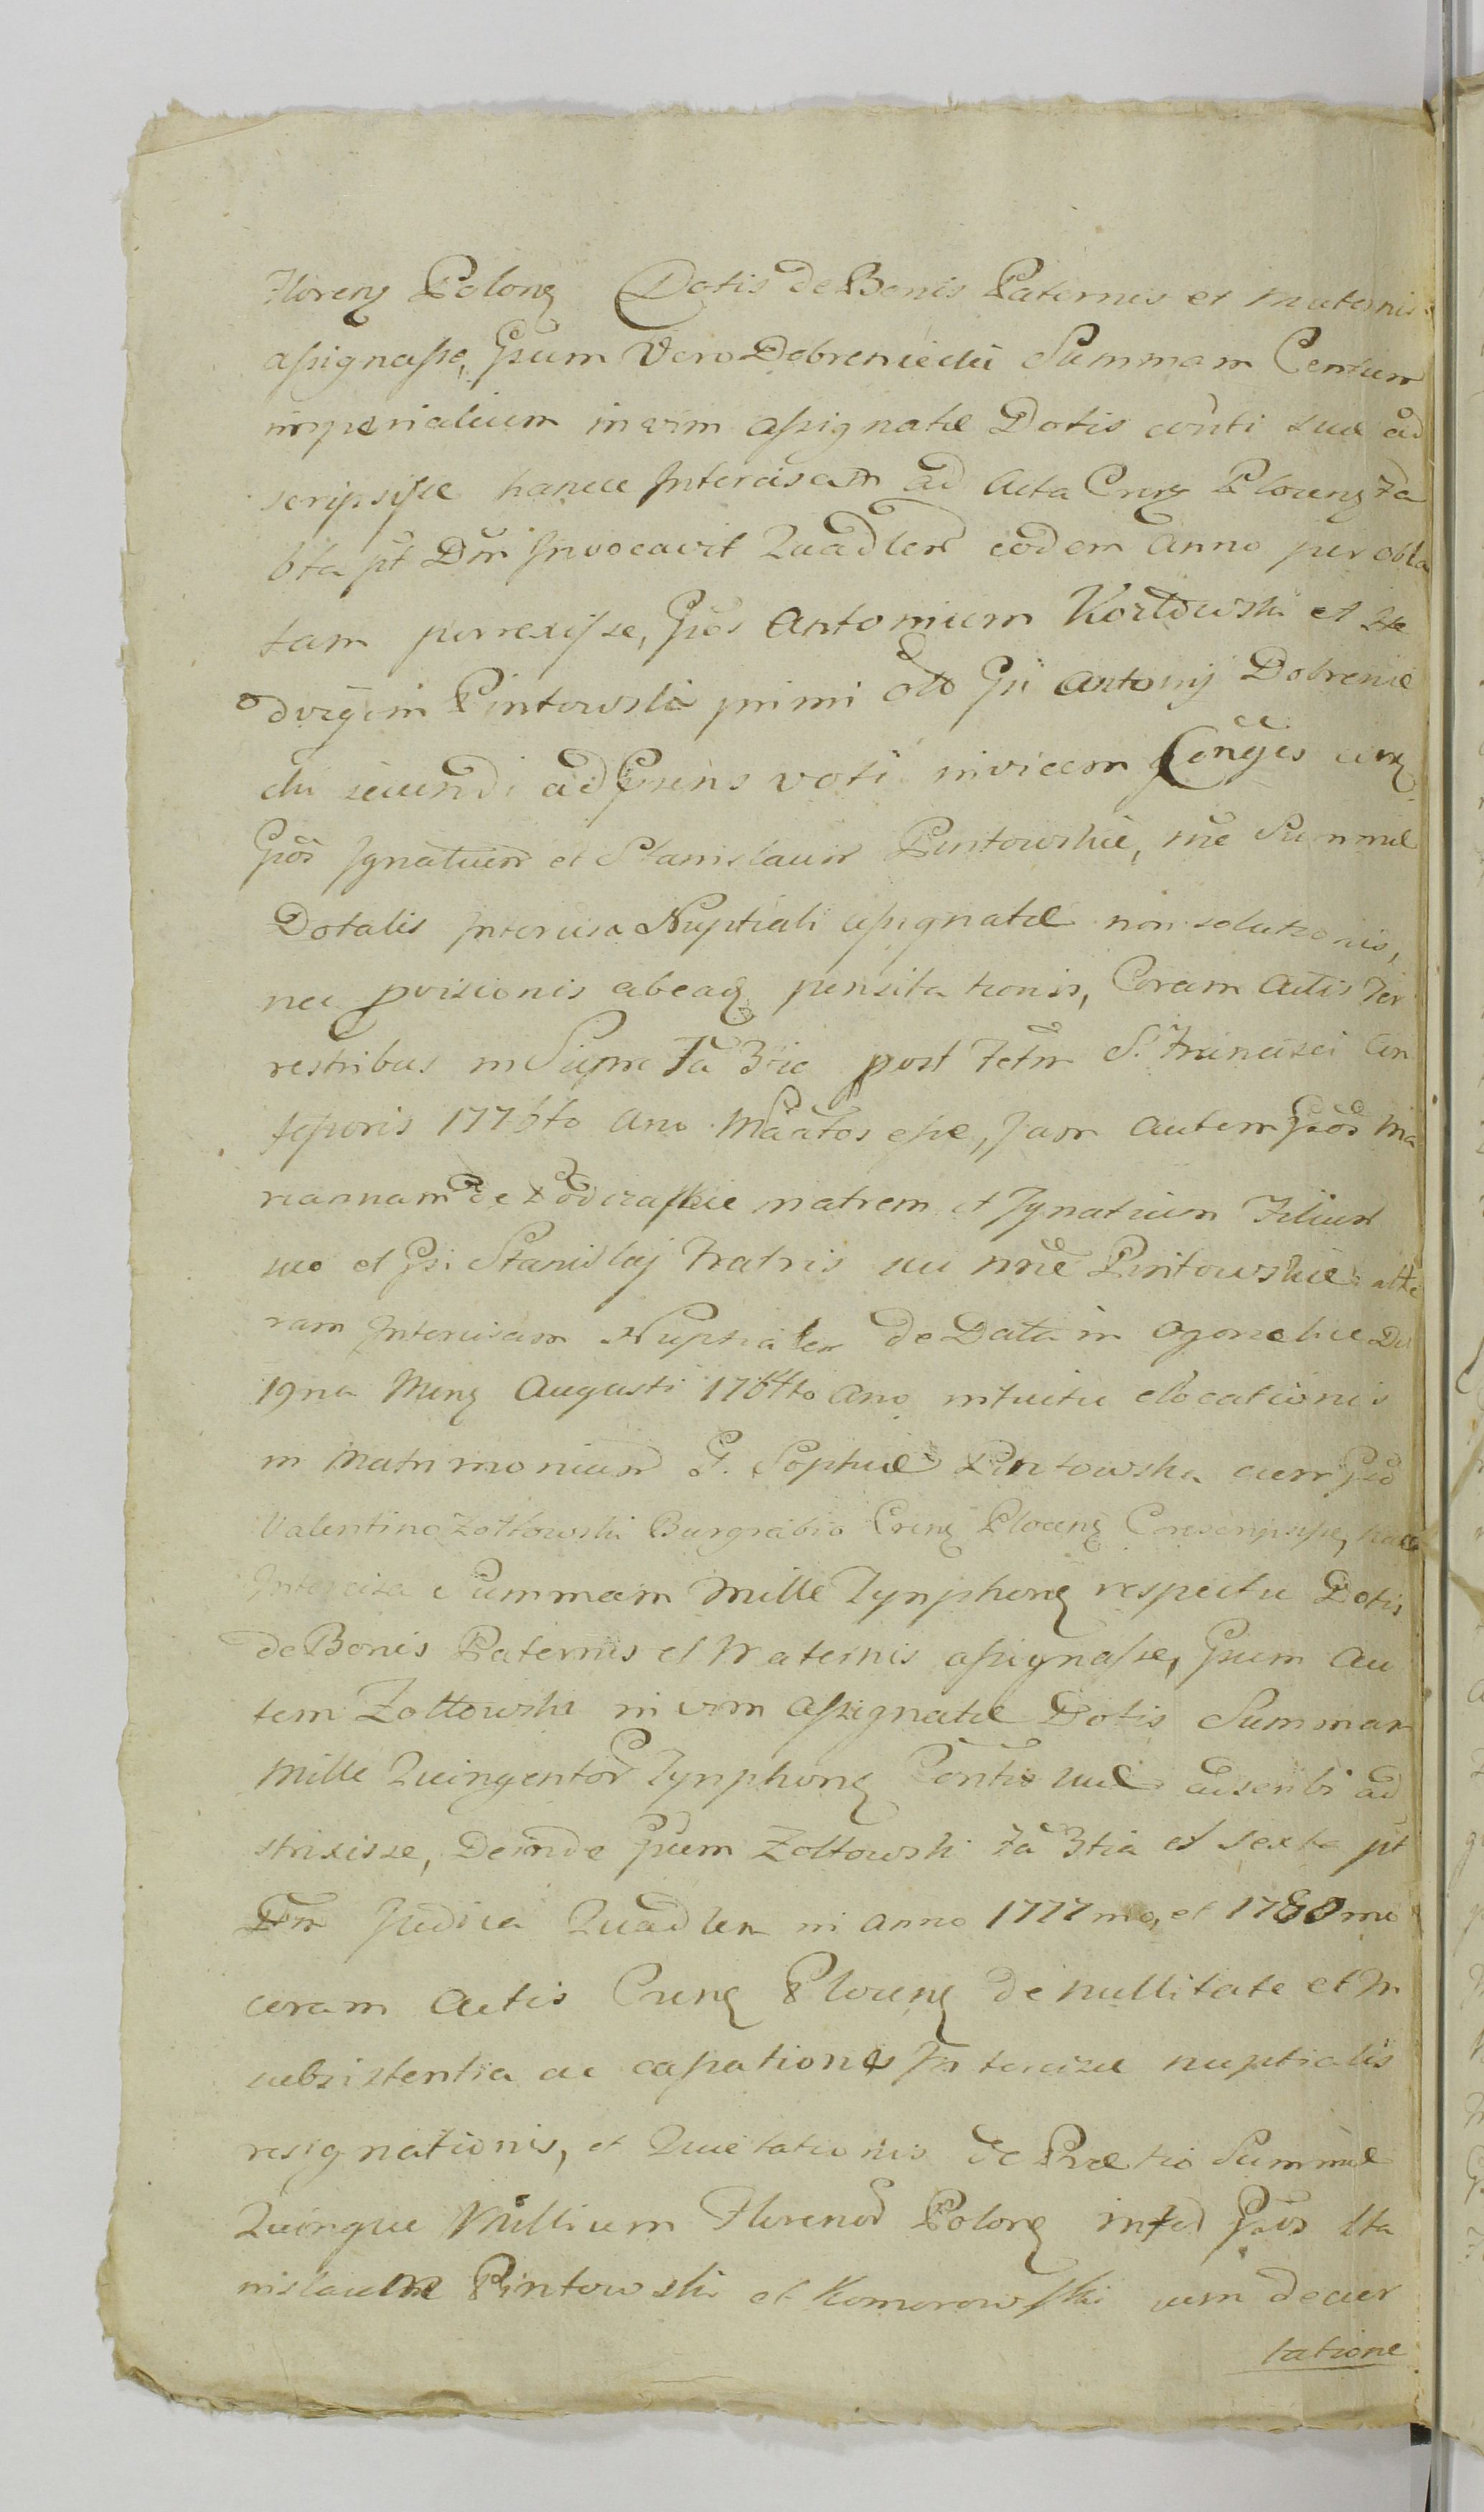 Floreng Polong Dotis de Bonis Paternis et Maternis
assignasse, Gsum Vero Dobreniecki Summam Centum
imperialium in vim assignatæ Dotis conti suæ ad
scripsisse hancce Intercisam ad Acta Creng Ploceng Fa
6ta pt Dm Invocavit Quadlem eodem Anno per obla
tam porrexisse, Gsos Antonium Kozłowski et He
dvigem Pintowskie primi olo Gsi Antonij Dobrenie
cki secundi ad Gsens voti invicem Conges ceng
Gsos Ignatium et Stanislaum Pintowskie, rne Summæ
Dotalis Intercisa Nuptiali assignatæ non solutionis,
nec provisionis ab eaq pensitationis, Coram Actis Ter
restribus in Sierpc Fa 3tia post Festm S. Francisci Con
fessoris 1776to Ano Maatos esse, Jam autem Gsos Ma
riannam de matrem et Ignatium Filium
suo et Gsi Stanislaj Fratris sui nne Pintowskie alte
ram Intercisam Nuptialem de Data in Ogonelice Die
19na Meng Augusti 1764to Ano intuitu elocationis
in Matrimonium G. Sophiæ Pintowska cum Gso
Valentino Zołtowski Burgrabio Creng Ploceng Conscripsisse, hacce
Intercisa Summam Mille Tynphong respectu Dotis
de Bonis Paternis et Maternis assignasse, Gsum au
tem Zołtowski in vim assignatæ Dotis Summam
Mille Quingentor Tynphong Contis suæ adscribi ad
strixisse, Deinde Gsum Zołtowski Fa 3tia et sexta pt
Dm Judica Quadlem in anno 1777mo, et 1780mo
coram Actis Creng Ploceng de nullitate et In
subsistentia ac cassationes Intercisæ nuptialis
resignationis, et Quietationis de Prætio Summæ
Quinque Millium Florenor Polong inter Gsos Sta
nislaum Pintowski et Komorowski cum decer
tatione